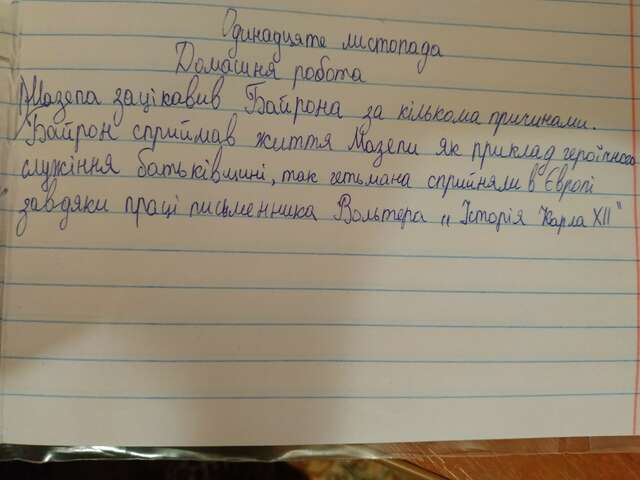 Одинадцяте листопада
Домашня робота
Мазепа зацікавив Байрона за кількома причинами.
Байрон сприймав життя Мазепи як приклад героїчного
служіння батьківщині, так гетьмана сприйняли в Європі
завдяки праці письменника Вольтера „Історія Карла XII"